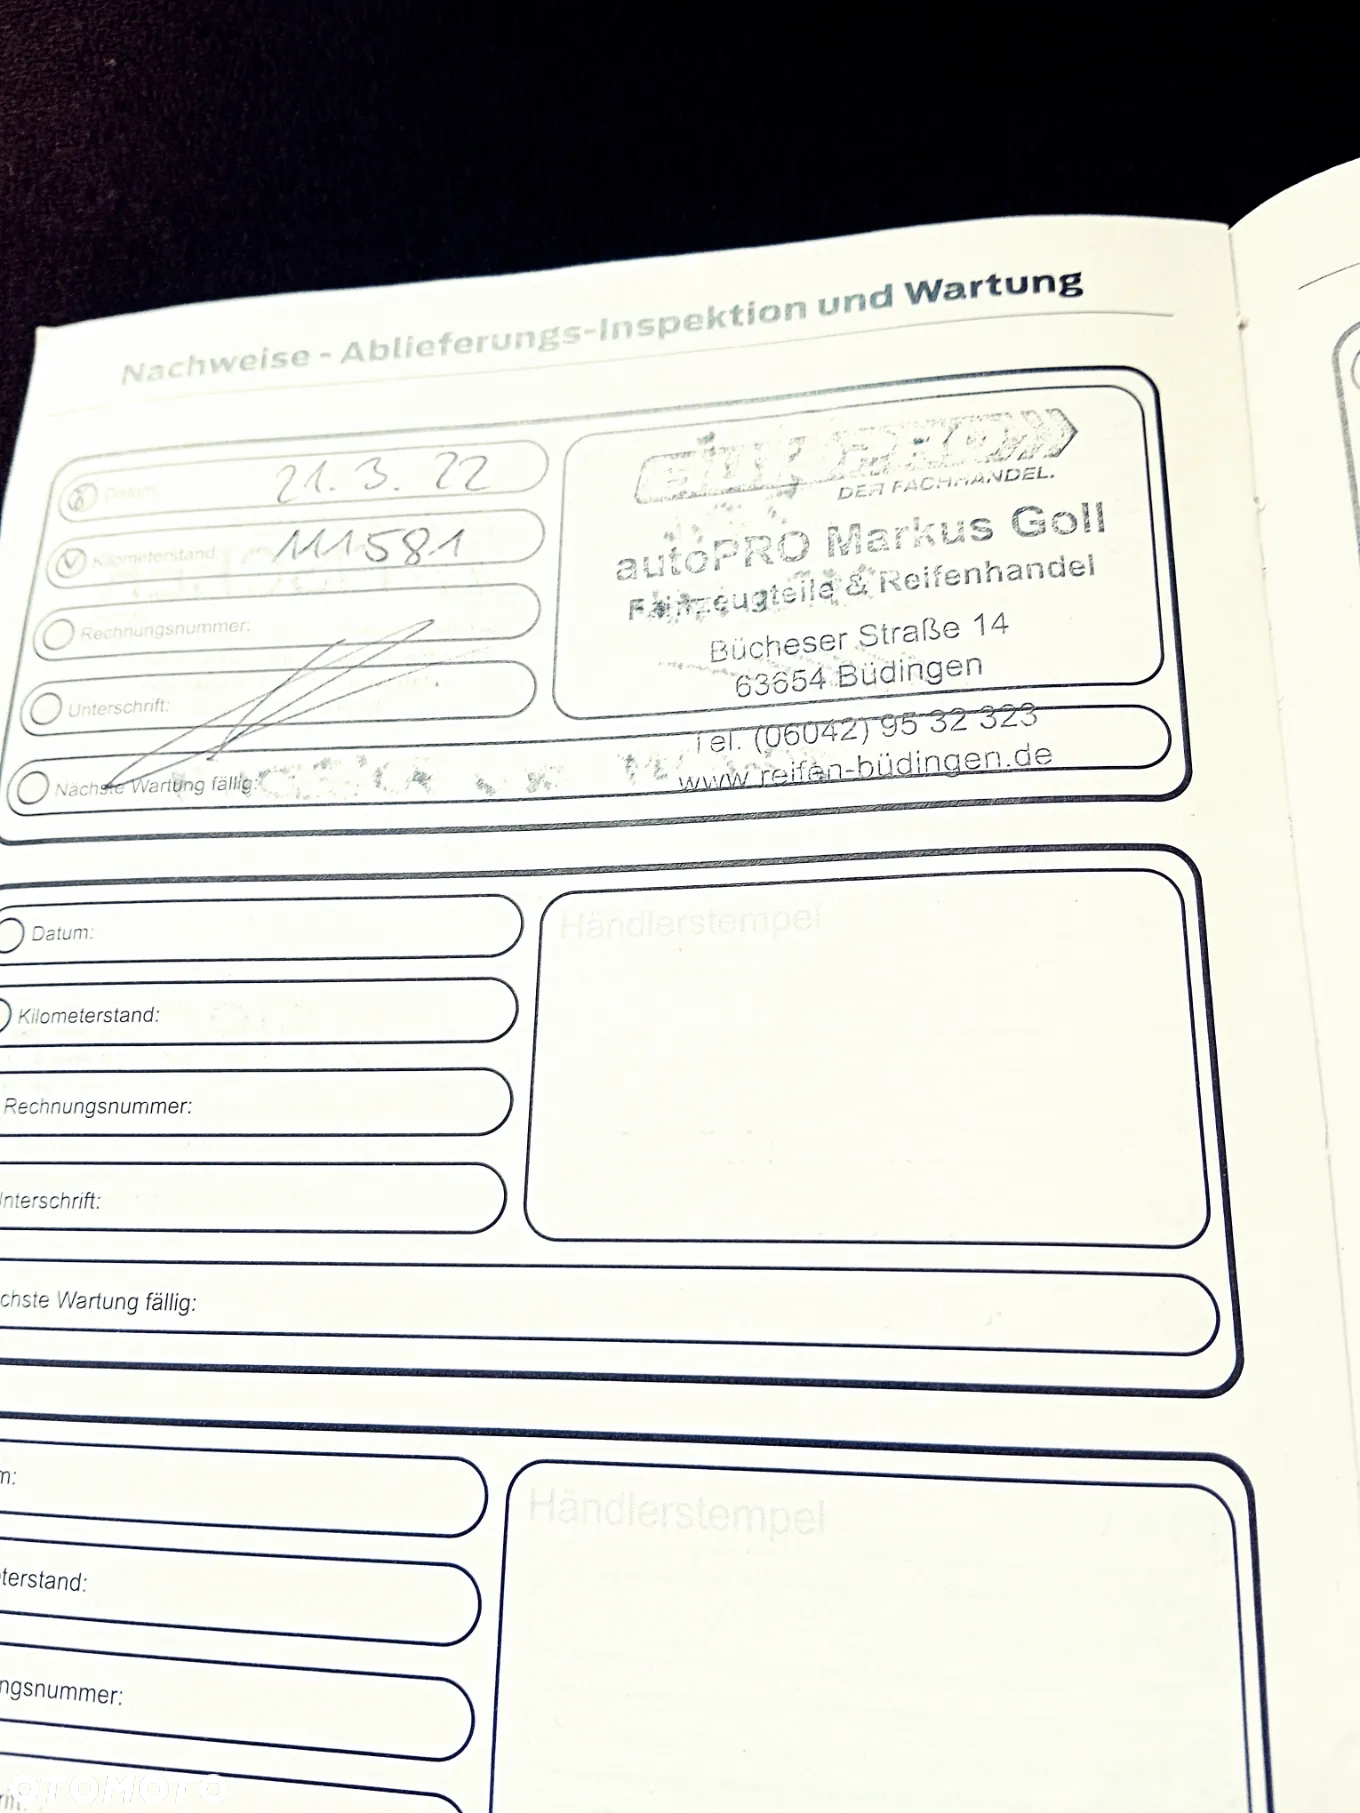 Nachweise - Ablieferungs-Inspektion und Wartung
Datum: 21.3.22
Kilometerstand: 111581
Rechnungsnummer:
Unterschrift:
Nächste Wartung fällig:
DER FACHHANDEL.
autoPRO Markus Goll
Fahrzeugteile & Reifenhandel
Bücheser Straße 14
63654 Büdingen
Tel. (06042) 95 32 323
www.reifen-büdingen.de
Datum:
Kilometerstand:
Rechnungsnummer:
Unterschrift:
chste Wartung fällig:
Händlerstempel
m:
terstand:
ngsnummer:
Händlerstempel
OTOMOTO